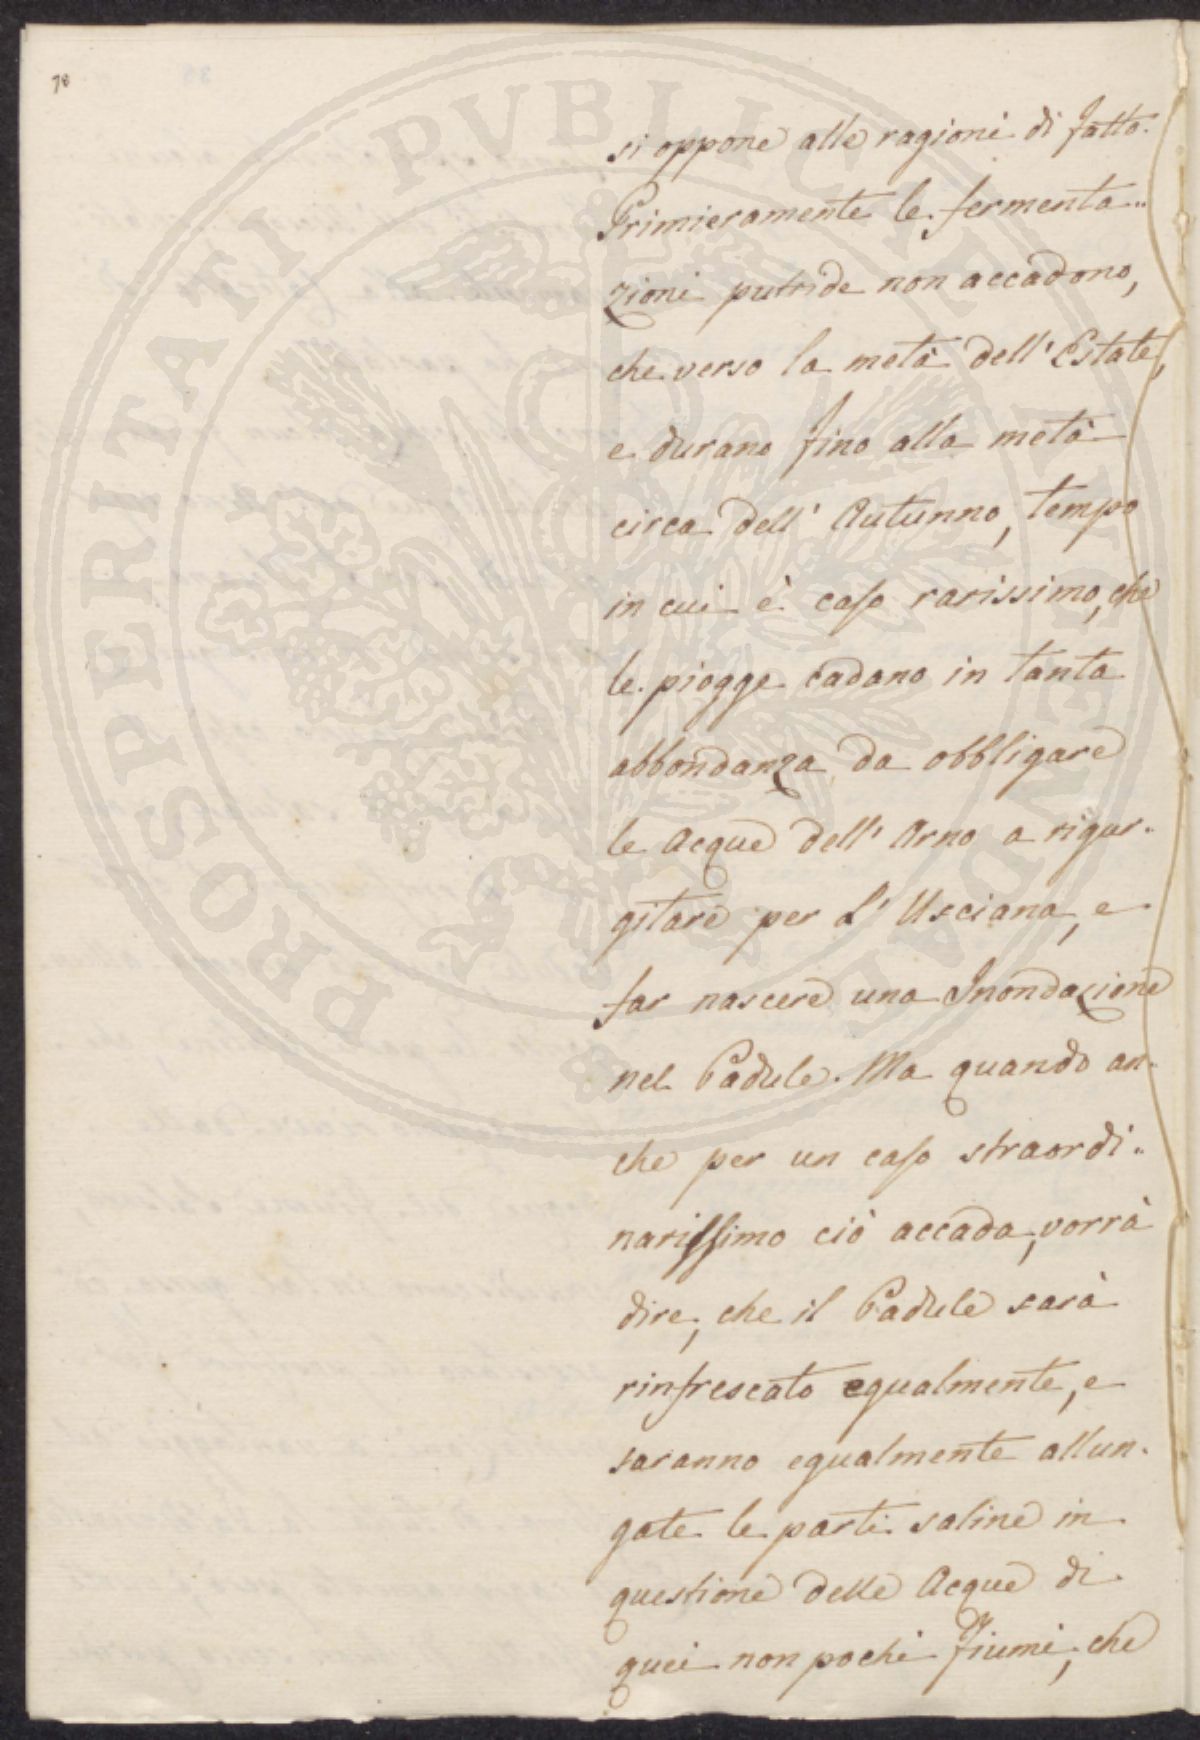 78
PROSPERITATI PVBLICAE AVGENDAE
si oppone alle ragioni di fatto.
Primieramente le fermenta..
zioni putride non accadono,
che verso la metà dell' Estate,
e durano fino alla metà
circa dell' Autunno, tempo
in cui è caso rarissimo, che
le piogge cadano in tanta
abbondanza da obbligare
le Acque dell' Arno a rigur.
gitare per l' Usciana, e
far nascere una Inondazione
nel Padule. Ma quando an.
che per un caso straordi..
narissimo ciò accada, vorrà
dire, che il Padule sarà
rinfrescato egualmente, e
saranno egualmente allun.
gate le parti saline in
questione delle Acque di
quei non pochi Fiumi, che